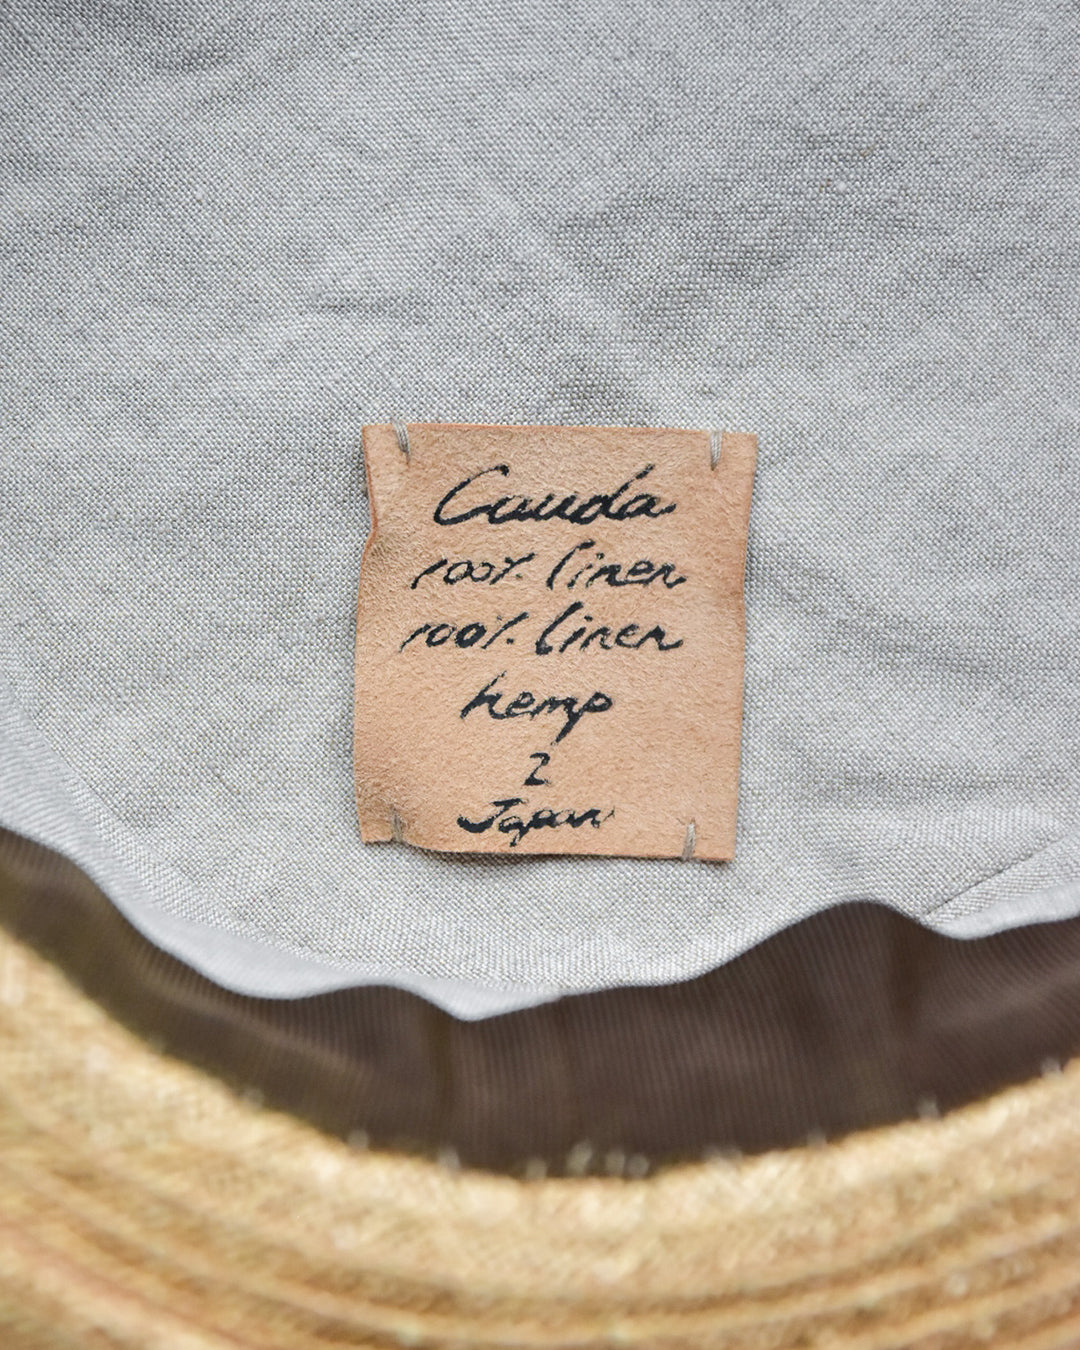 Cauda
100% linen
100% linen
hemp
2
Japan